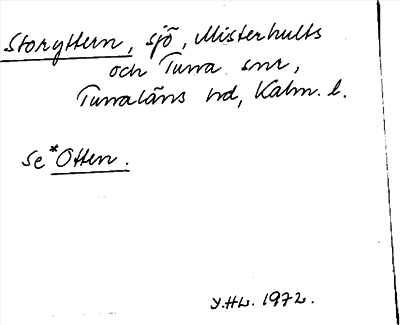 Storyttern, sjö, Misterhults
och Tuna snr,
Tunaläns hd, Kalm. l.
Se *Otten.
Y.HL. 1972.